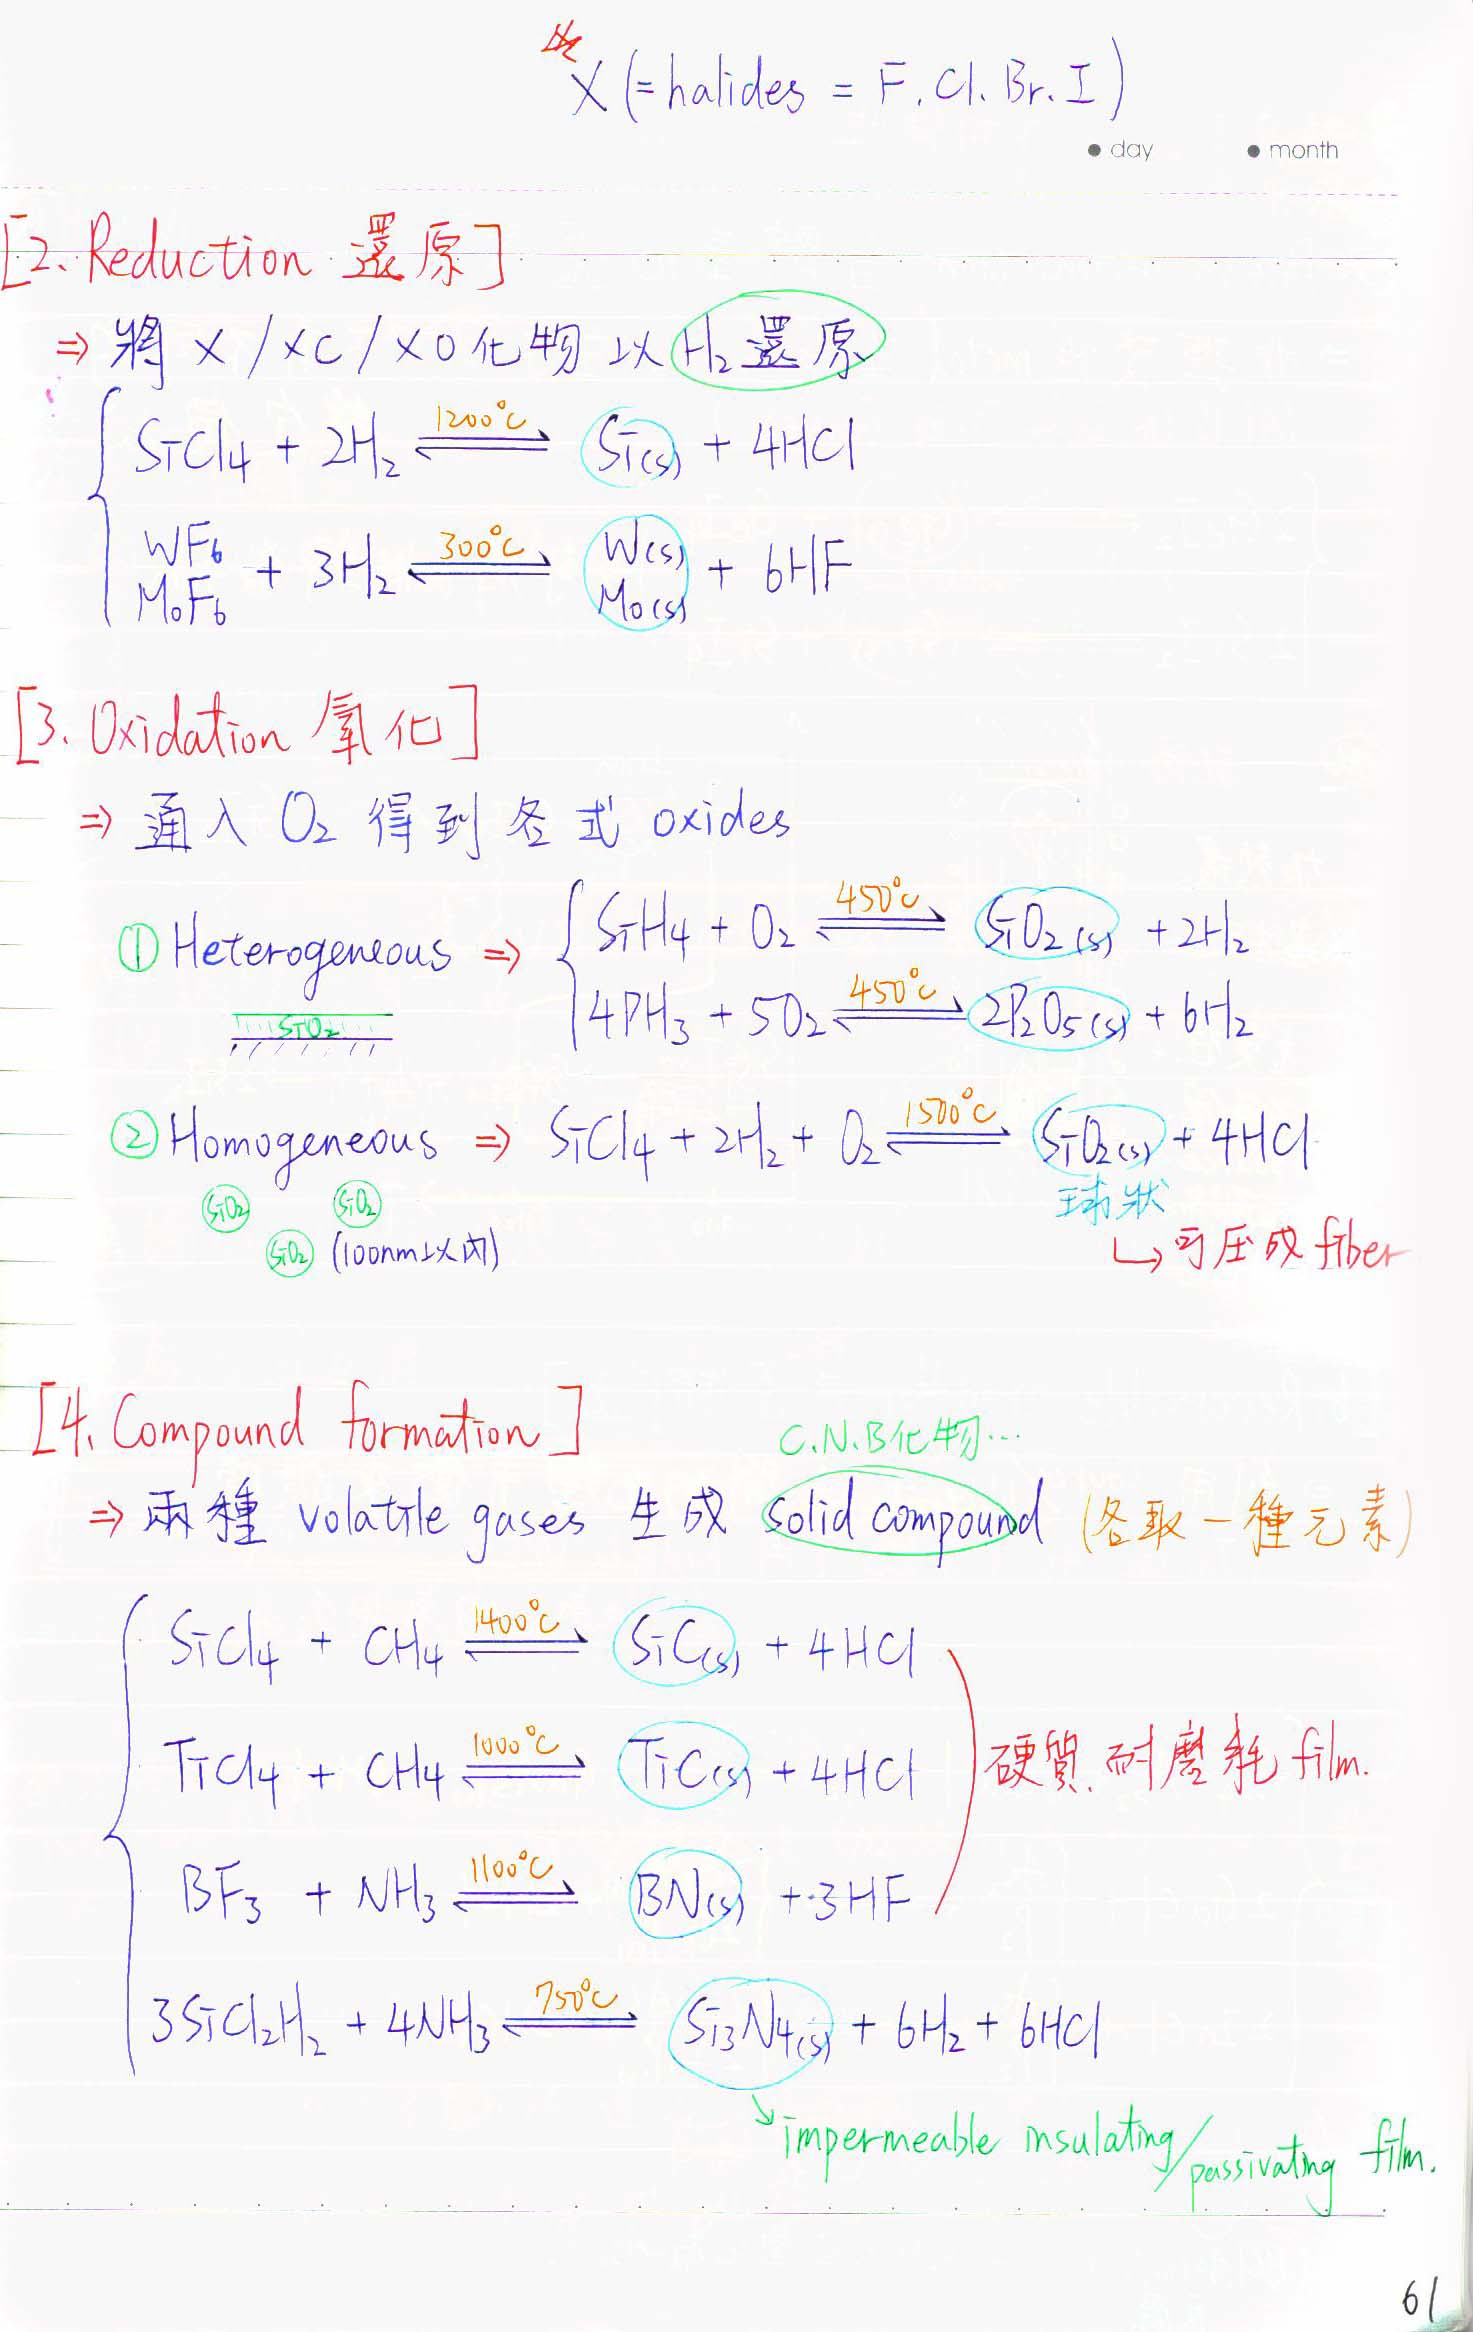 X (= halides = F. Cl. Br. I)
● day ● month
[2. Reduction 還原]
⇒ 將 X / XC / XO 化物 以 H₂ 還原
SiCl₄ + 2H₂ ⇌ 1200°C Si(s) + 4HCl
WF₆ MoF₆ + 3H₂ ⇌ 300°C W(s) Mo(s) + 6HF
[3. Oxidation 氧化]
⇒ 通入 O₂ 得到各式 oxides
① Heterogeneous ⇒ SiH₄ + O₂ ⇌ 450°C SiO₂(s) + 2H₂
SiO₂
4PH₃ + 5O₂ ⇌ 450°C 2P₂O₅(s) + 6H₂
② Homogeneous ⇒ SiCl₄ + 2H₂ + O₂ ⇌ 1500°C SiO₂(s) + 4HCl
SiO₂ SiO₂ 球狀
SiO₂ (100nm以內) ↳ 可压成 fiber
[4. Compound formation]
C.N.B化物…
⇒ 兩種 volatile gases 生成 solid compound (各取一種元素)
SiCl₄ + CH₄ ⇌ 1400°C SiC(s) + 4HCl
TiCl₄ + CH₄ ⇌ 1000°C TiC(s) + 4HCl 硬質.耐磨耗 film.
BF₃ + NH₃ ⇌ 1100°C BN(s) + 3HF
3SiCl₂H₂ + 4NH₃ ⇌ 750°C Si₃N₄(s) + 6H₂ + 6HCl
impermeable insulating/passivating film.
61